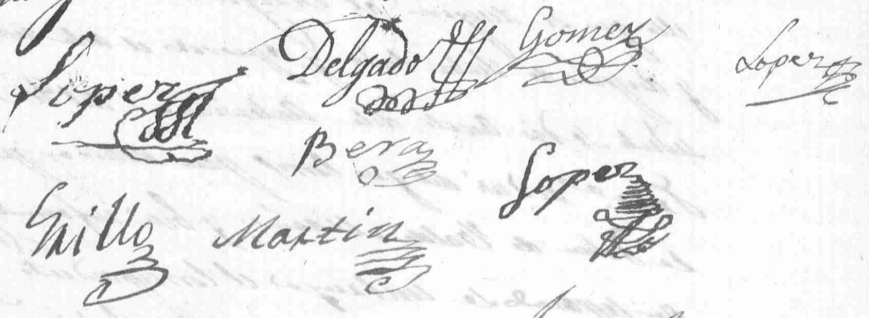 Lopez Delgado Gomez Lopez
Bera Lopez
Grillo Martin